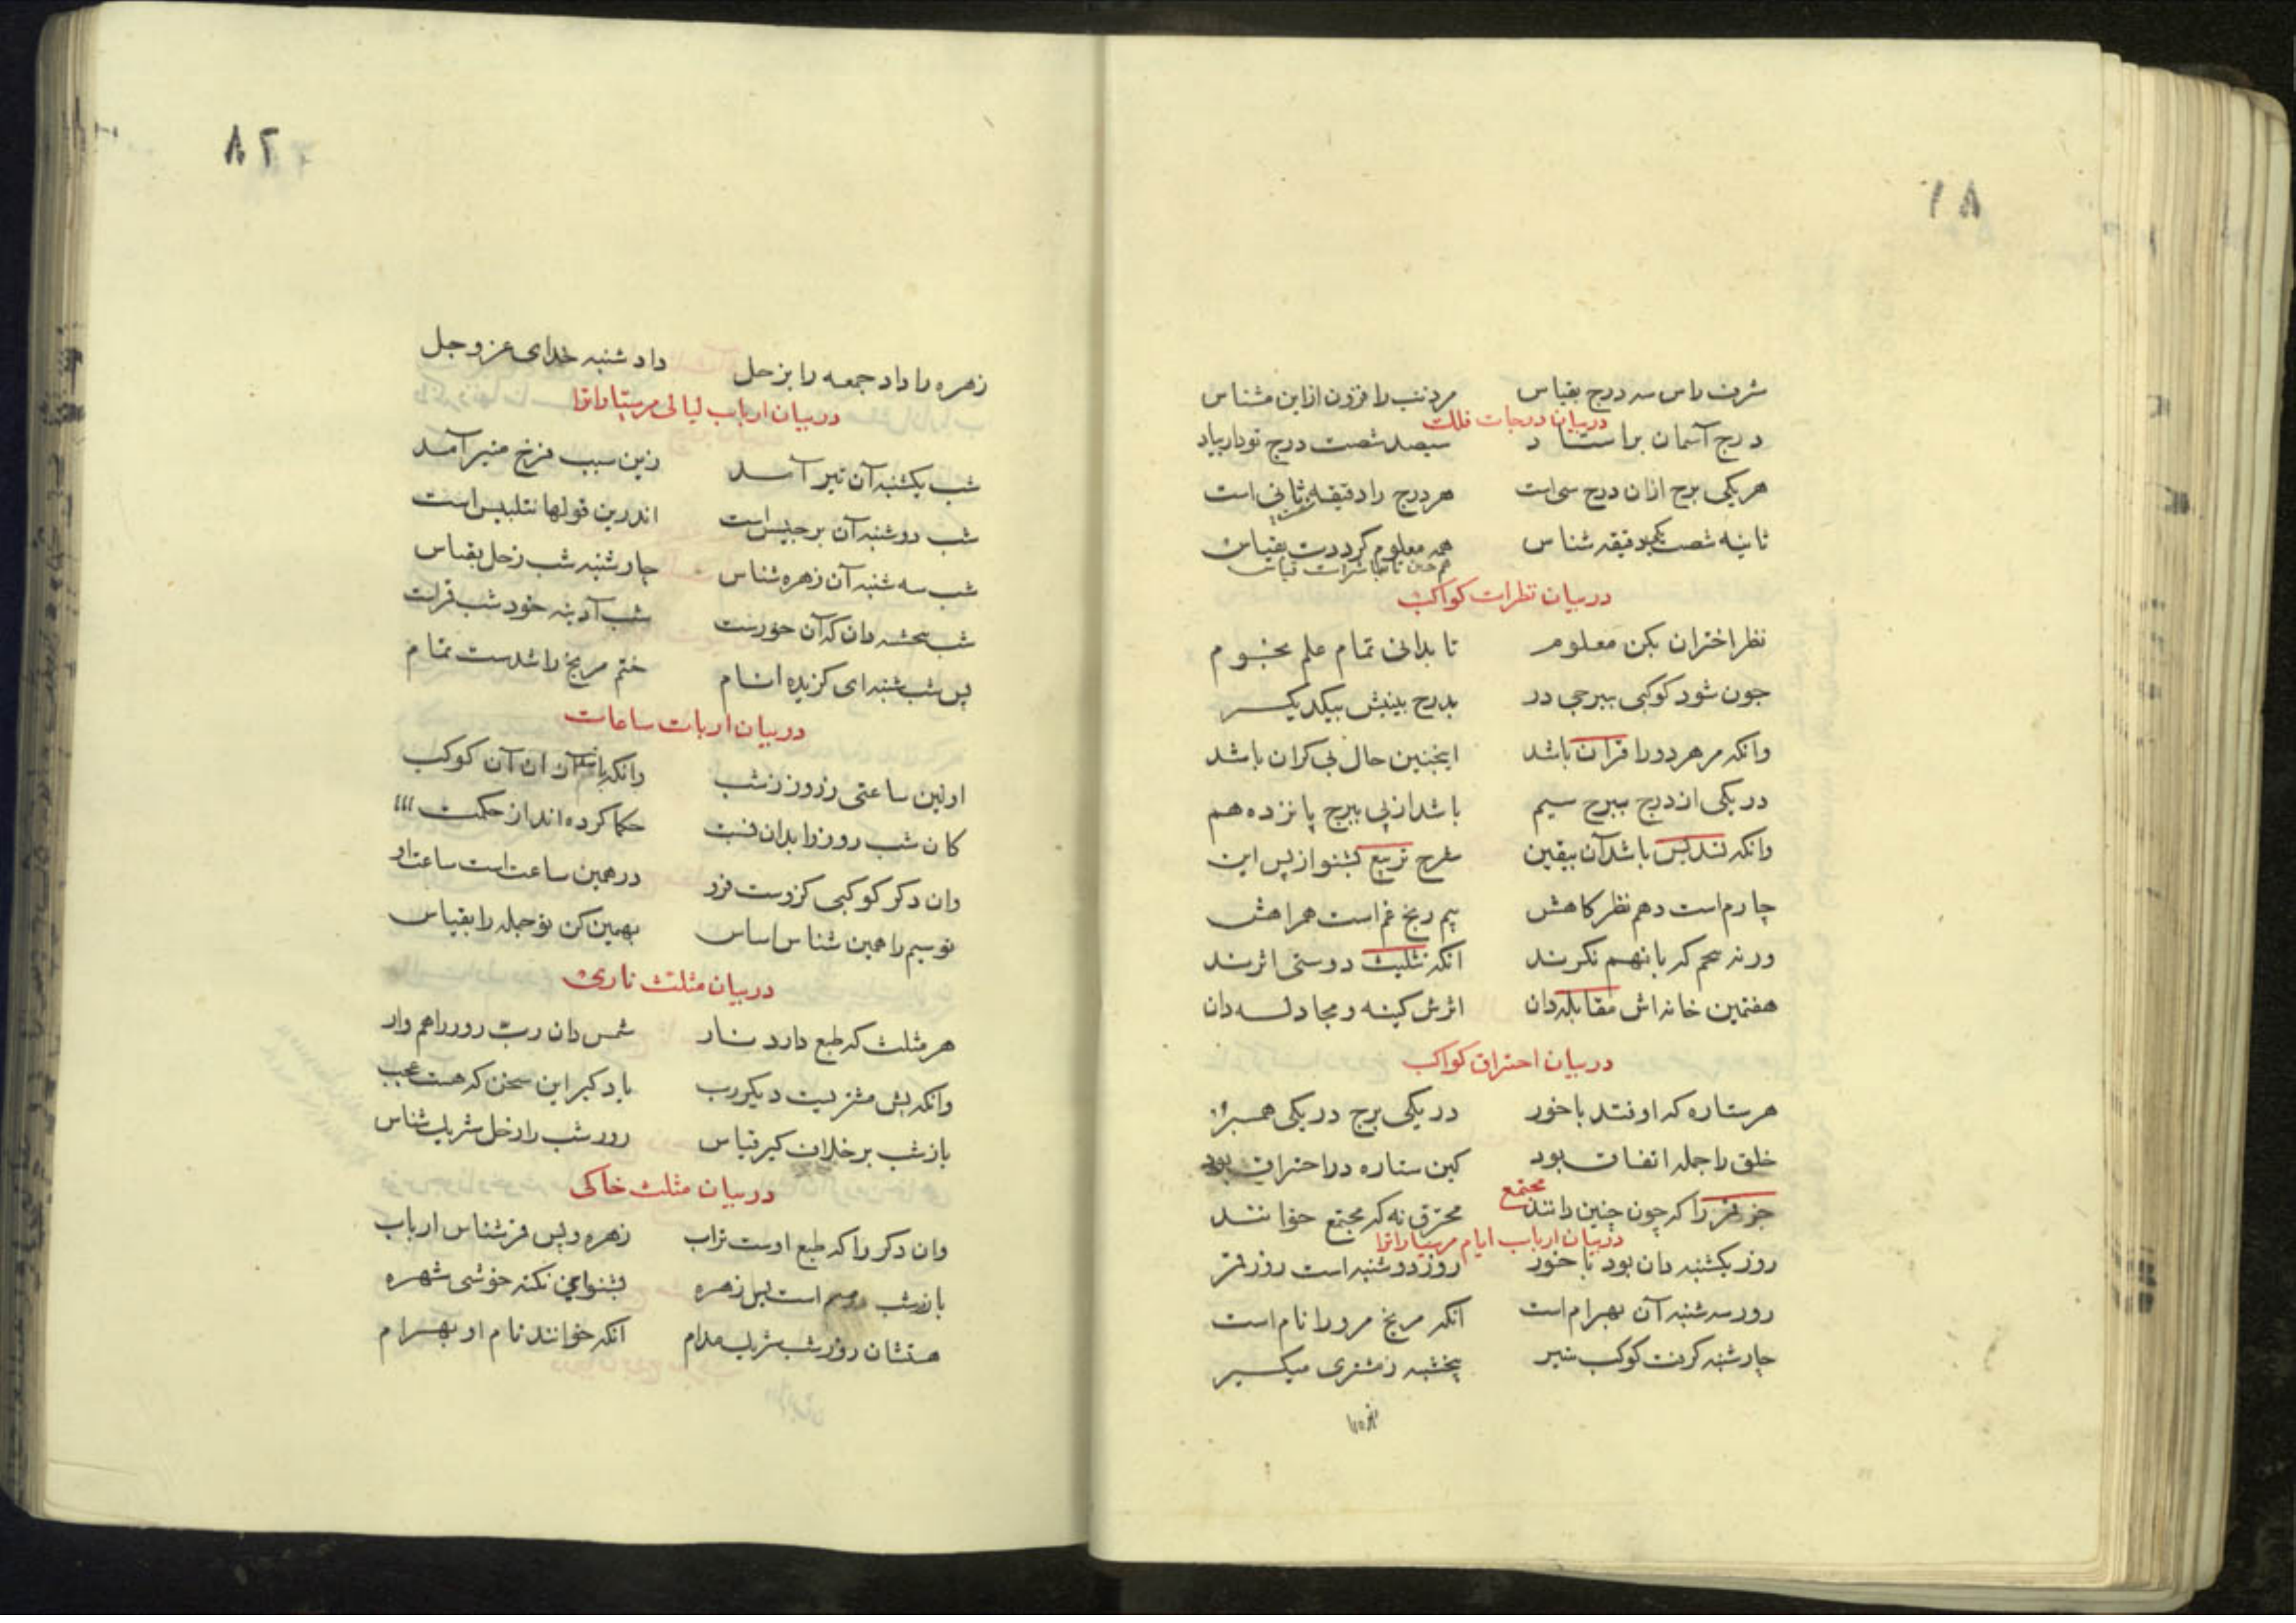 ۸۱
شرف راس سه درج بقیاس مر ذنب را فزون ازاین مشناس
دربیان درجات فلک
درج آسمان براستا د سیصد شصت درج تودار بیاد
هر یکی برج ازان درج سی است هر درج را دقیقه ثانی است
ثانیه شصت یکدقیقه شناس همه معلوم کرددت بقیاس
دربیان نظرات کواکب
نظر اختران بکن معلوم تا بدانی تمام علم نجوم
جون شود کوکبی ببرجی در بدرج بینیش بیکدیکر
وانکه مر هر دورا قران باشد اینجنین حال بی کران باشد
در یکی از درج ببرج سیم باشد از پی ببرج پانزدهم
وانکه تسدیس باشد آن بیقین شرح تربیع بشنو از پس این
چارم است دهم نظر کاهش بیم رنج غم است همراهش
ورنه پنجم که با نهم نکرند انکه تثلیث دوستی اثرند
هفتمین خانه اش مقابله دان اثرش کینه و مجادله دان
دربیان احتراق کواکب
هر ستاره که اوفتد با خور در یکی برج در یکی همبر
خلق را جمله اتفاق بود کین ستاره در احتراق بود
مجتمع
جز قمر را که چون چنین دانند محترق نه که مجتمع خوانند
دربیان ارباب ایام مرسیاراترا
روز یکشنبه دان بود با خور روز دوشنبه است روز قمر
روز سه شنبه آن بهرام است انکه مریخ مرورا نام است
چارشنبه کرفت کوکب تیر پنجشبه ز مشتری میکیر
زهره
۸۲
زهره را داد جمعه را بزحل داد شنبه خدای عز وجل
دربیان ارباب لیالی مرسیاراترا
شب یکشنبه آن تیر آمد زین سبب فرخ منیر آمد
شب دوشنبه آن برجیس است اندرین قولها نتلبیس است
شب سه شنبه آن زهره شناس چارشنبه شب زحل بقیاس
شب پنجشنبه دان که آن خورست شب آدینه خود شب قمرت
پس شب شنبه ای کزیده انام ختم مریخ را شدست تمام
دربیان اربات ساعات
اولین ساعتی ز روز ز شب وانکه باشد آن ان آن کوکب
کان شب روز را بدان نسبت حکما کرده اند از حکمت
وان دکر کوکبی کزوست فرو در همین ساعت است ساعت او
تو سیم را همین شناس اساس بهمین کن تو جمله را بقیاس
دربیان مثلث ناری
هر مثلث که طبع دارد نار شمس دان رب روز را هم وار
وانکه بش مشتریست دیکر رب یاد کیر این سخن که هست عجب
باز شب بر خلاف کیر قیاس روز شب را زحل شریک شناس
دربیان مثلث خاکی
وان دکر را که طبع اوست تراب زهره و پس قمر شناس ارباب
باز شب است پس زهره بشنو این نکته خوشی شهره
هستشان روز شب شریک مدام انکه خوانند نام او بهرام